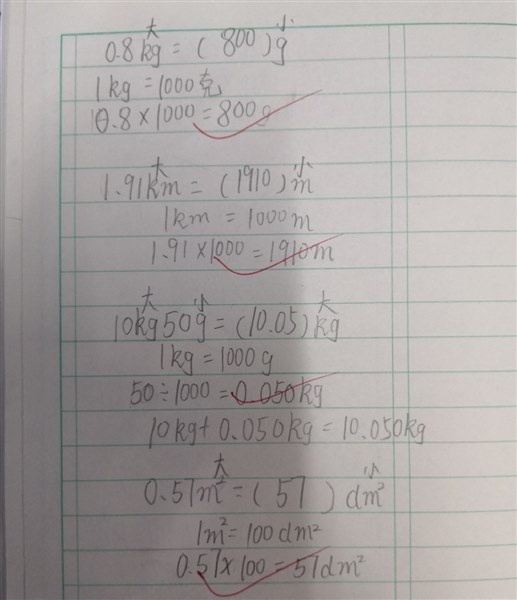 大 小
0.8kg=(800)g
1kg=1000克
0.8×1000=800g
大 小
1.91km=(1910)m
1km=1000m
1.91×1000=1910m
大 小 大
10kg50g=(10.05)kg
1kg=1000g
50÷1000=0.050kg
10kg+0.050kg=10.050kg
大 小
0.57m²=(57)dm²
1m²=100dm²
0.57×100=57dm²